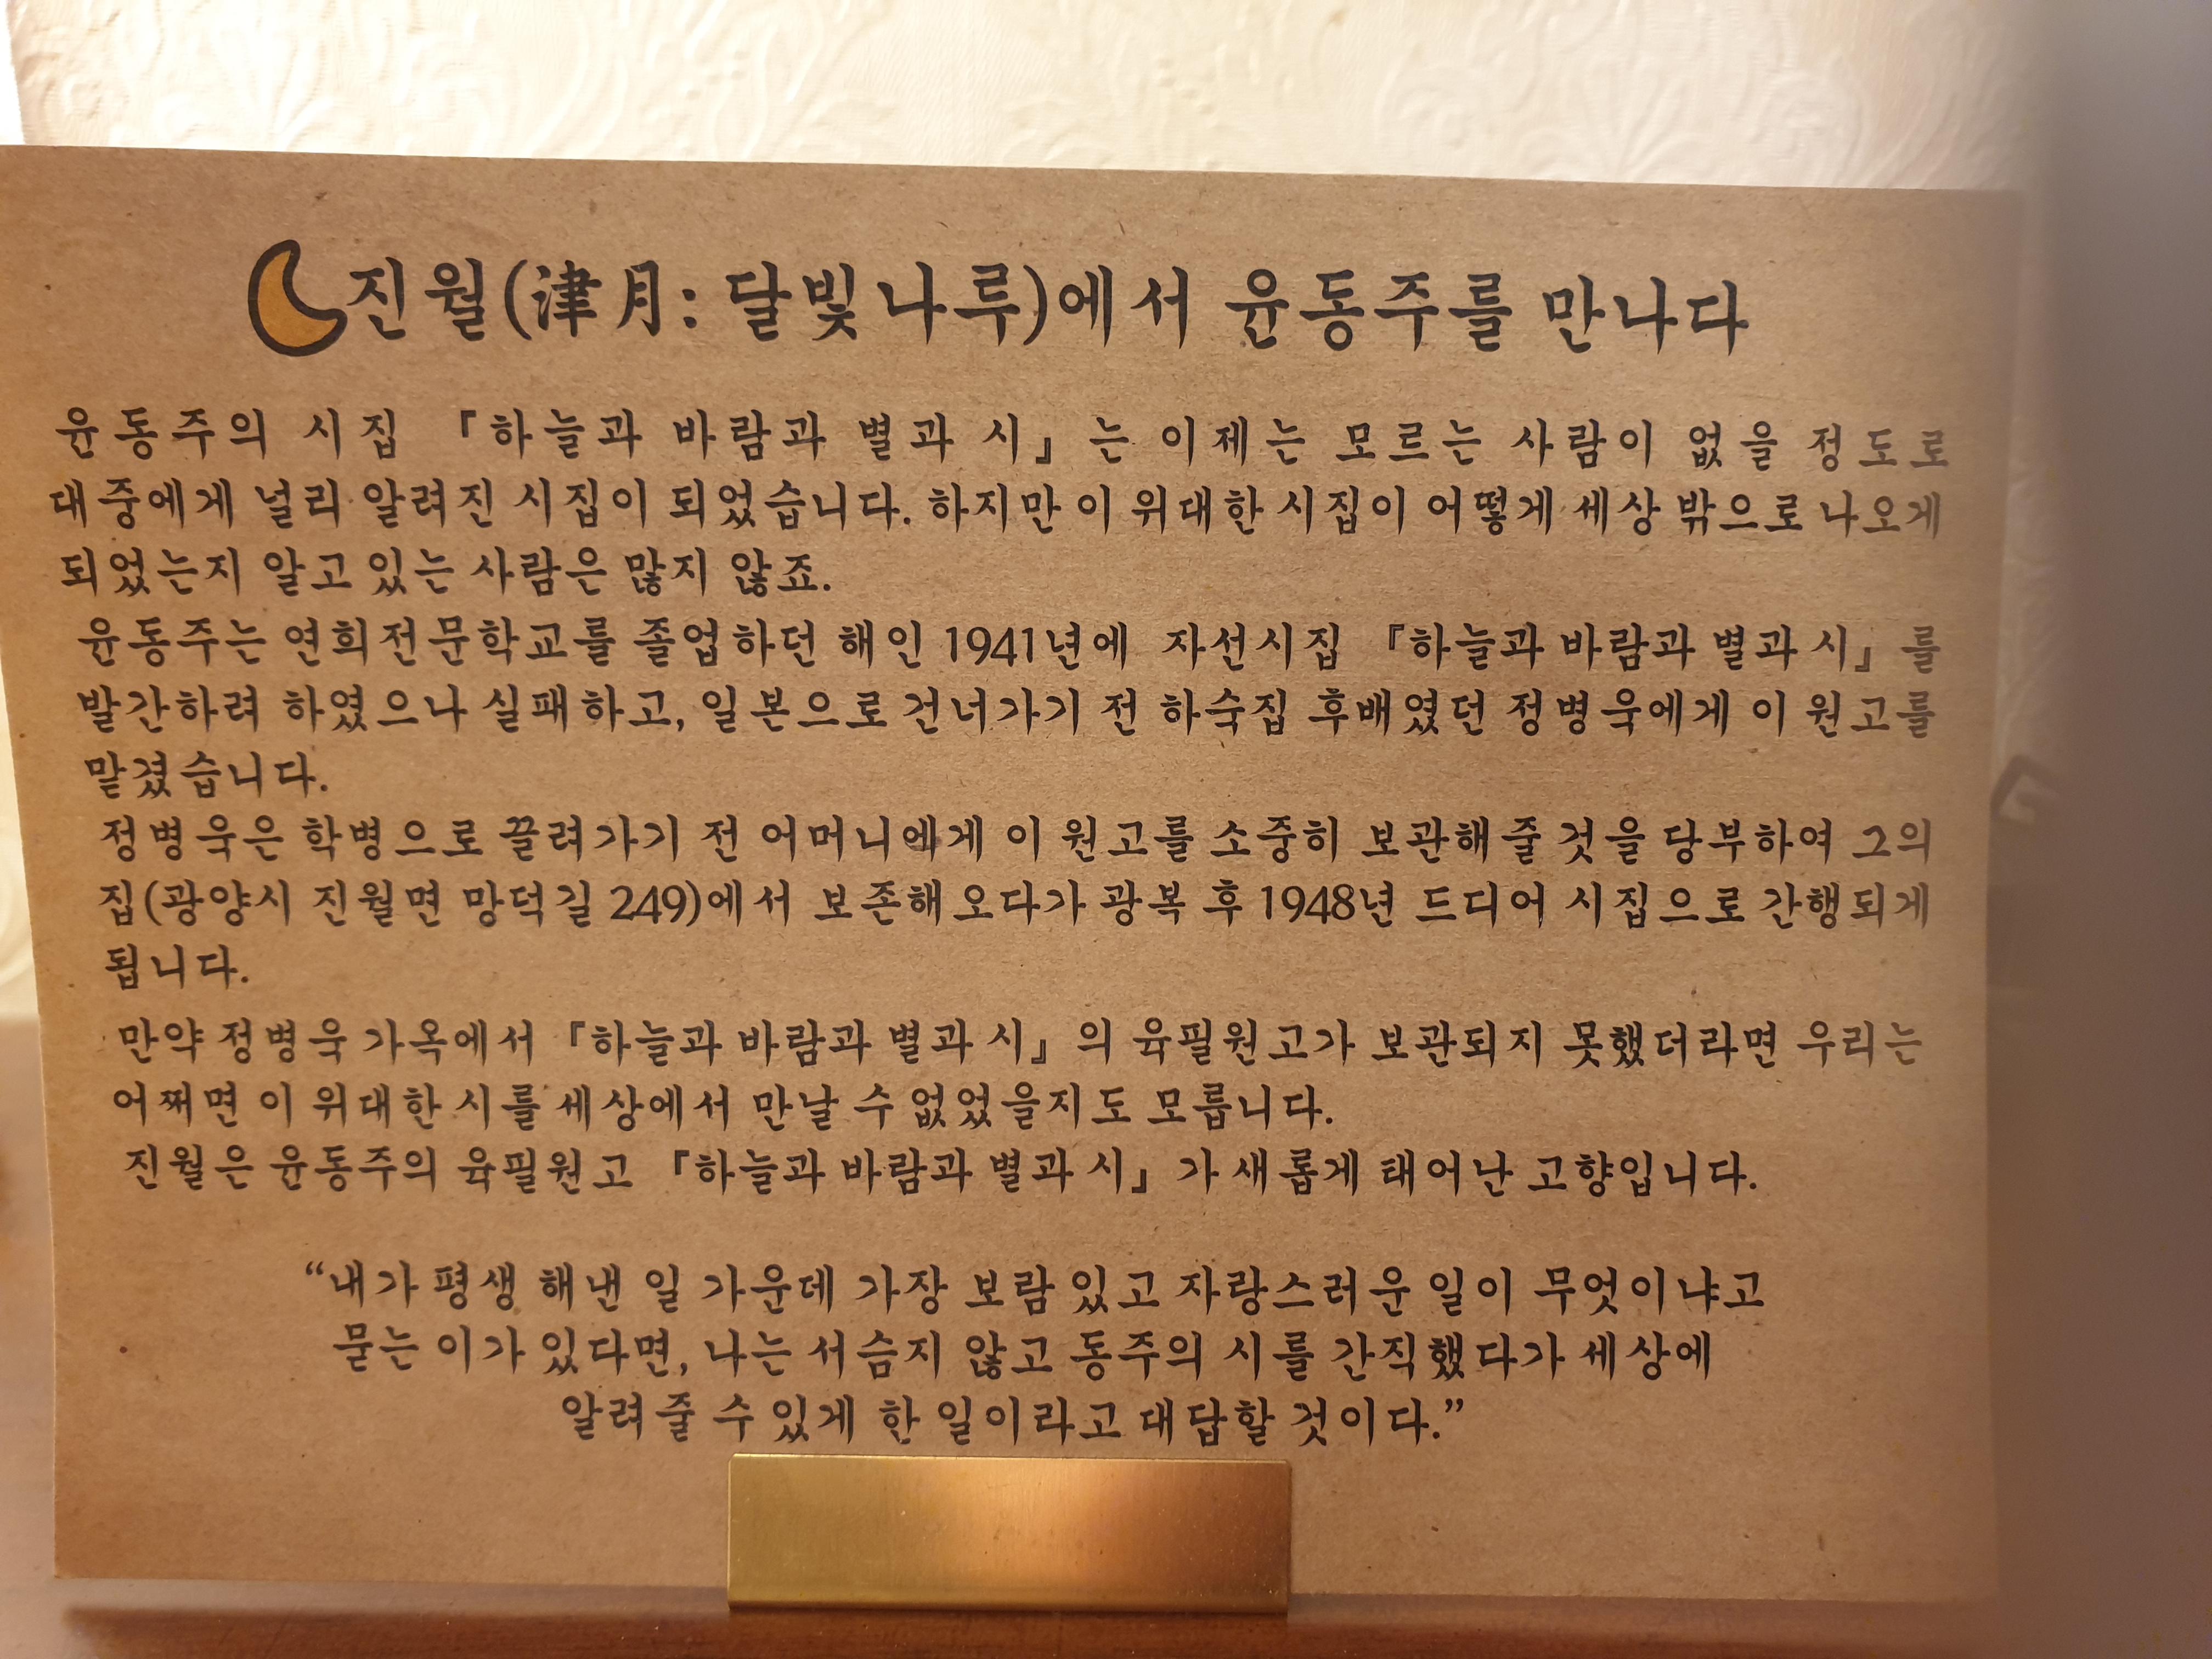 진월(津月: 달빛나루)에서 윤동주를 만나다
윤동주의 시집 『하늘과 바람과 별과 시』는 이제는 모르는 사람이 없을 정도로
대중에게 널리 알려진 시집이 되었습니다. 하지만 이 위대한 시집이 어떻게 세상 밖으로 나오게
되었는지 알고 있는 사람은 많지 않죠.
윤동주는 연희전문학교를 졸업하던 해인 1941년에 자선시집 『하늘과 바람과 별과 시』를
발간하려 하였으나 실패하고, 일본으로 건너가기 전 하숙집 후배였던 정병욱에게 이 원고를
맡겼습니다.
정병욱은 학병으로 끌려가기 전 어머니에게 이 원고를 소중히 보관해줄 것을 당부하여 그의
집(광양시 진월면 망덕길 249)에서 보존해오다가 광복 후 1948년 드디어 시집으로 간행되게
됩니다.
만약 정병욱 가옥에서 『하늘과 바람과 별과 시』의 육필원고가 보관되지 못했더라면 우리는
어쩌면 이 위대한 시를 세상에서 만날 수 없었을지도 모릅니다.
진월은 윤동주의 육필원고 『하늘과 바람과 별과 시』가 새롭게 태어난 고향입니다.
“내가 평생 해낸 일 가운데 가장 보람 있고 자랑스러운 일이 무엇이냐고
묻는 이가 있다면, 나는 서슴지 않고 동주의 시를 간직했다가 세상에
알려줄 수 있게 한 일이라고 대답할 것이다.”